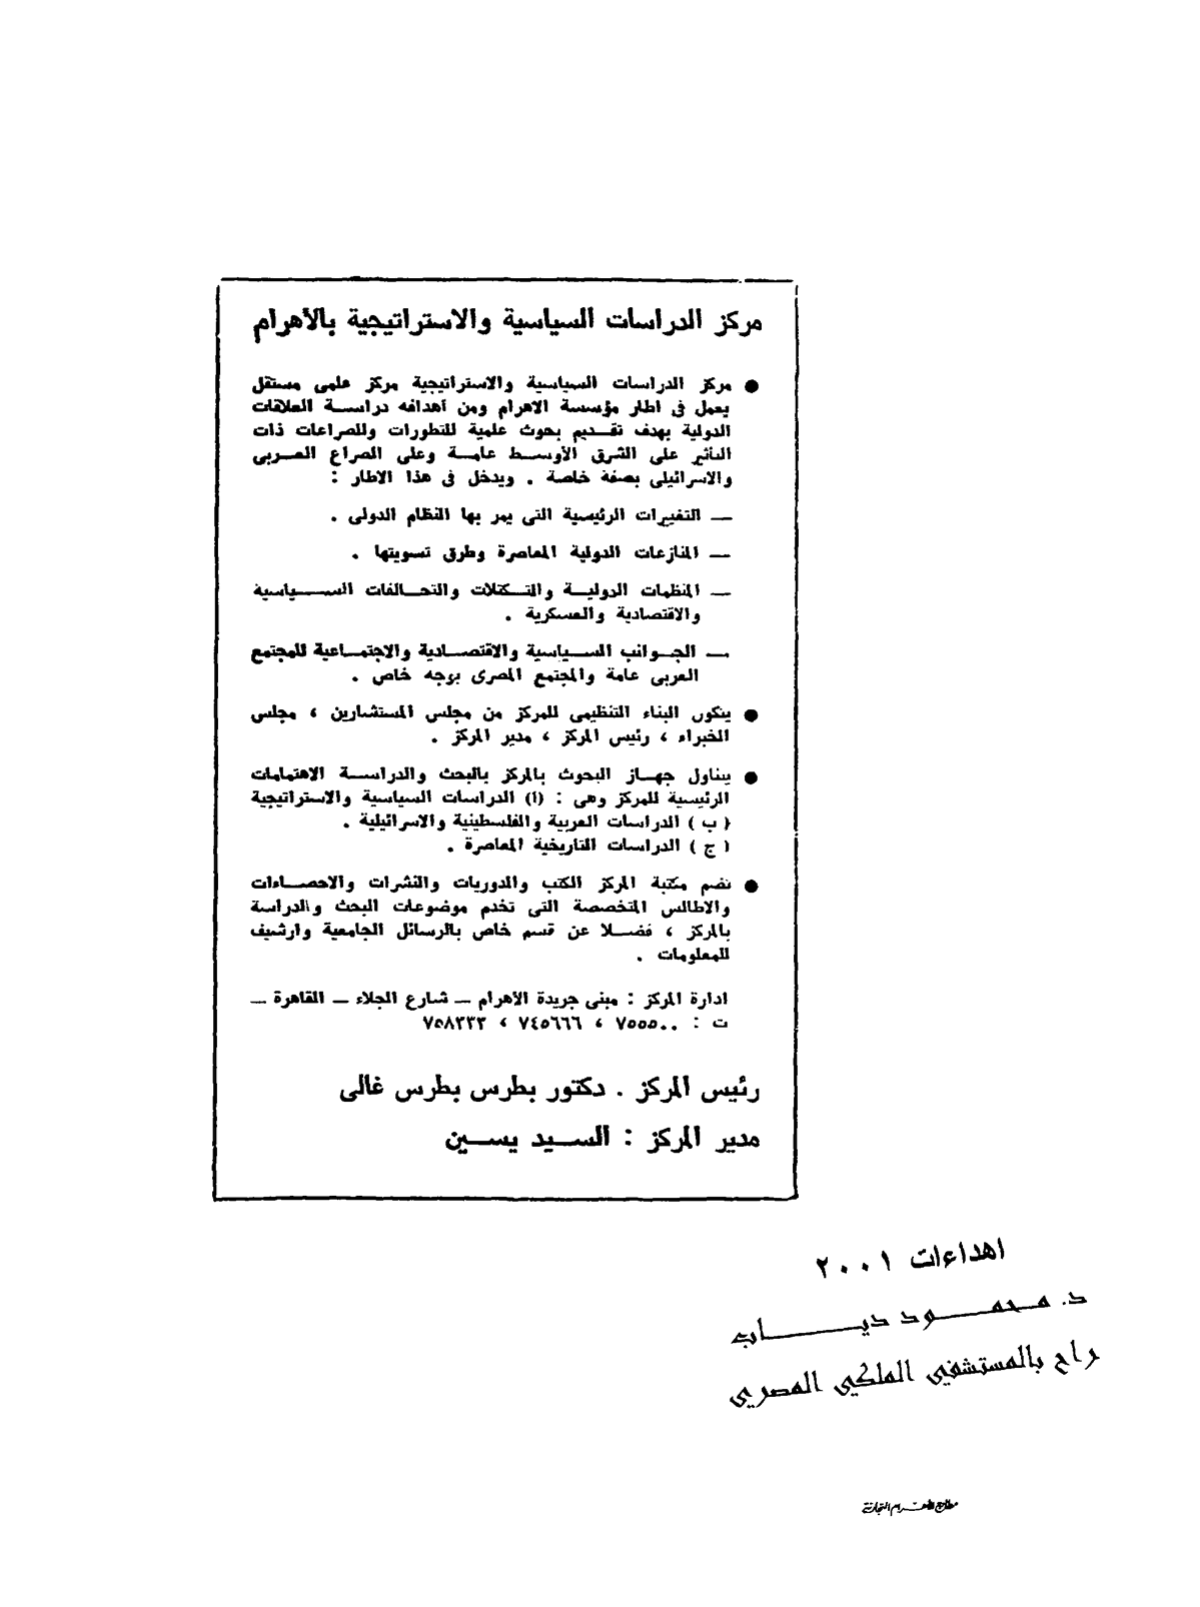 مركز الدراسات السياسية والاستراتيجية بالأهرام
● مركز الدراسات السياسية والاستراتيجية مركز علمى مستقل
يعمل فى اطار مؤسسة الاهرام ومن أهدافه دراسة العلاقات
الدولية بهدف تقديم بحوث علمية للتطورات والصراعات ذات
التأثير على الشرق الأوسط عامة وعلى الصراع العربى
والاسرائيلى بصفة خاصة . ويدخل فى هذا الاطار :
— التغيرات الرئيسية التى يمر بها النظام الدولى .
— المنازعات الدولية المعاصرة وطرق تسويتها .
— المنظمات الدولية والتكتلات والتحالفات السياسية
والاقتصادية والعسكرية .
— الجوانب السياسية والاقتصادية والاجتماعية للمجتمع
العربى عامة والمجتمع المصرى بوجه خاص .
● يتكون البناء التنظيمى للمركز من مجلس المستشارين ، مجلس
الخبراء ، رئيس المركز ، مدير المركز .
● يتناول جهاز البحوث بالمركز بالبحث والدراسة الاهتمامات
الرئيسية للمركز وهى : (أ) الدراسات السياسية والاستراتيجية
( ب ) الدراسات العربية والفلسطينية والاسرائيلية .
( ج ) الدراسات التاريخية المعاصرة .
● تضم مكتبة المركز الكتب والدوريات والنشرات والاحصاءات
والاطالس المتخصصة التى تخدم موضوعات البحث والدراسة
بالمركز ، فضلا عن قسم خاص بالرسائل الجامعية وارشيف
للمعلومات .
ادارة المركز : مبنى جريدة الأهرام — شارع الجلاء — القاهرة —
ت : ٧٥٥٥٠٠ ، ٧٤٥٦٦٦ ، ٧٥٨٣٣٣
رئيس المركز . دكتور بطرس بطرس غالى
مدير المركز : السيد يسين
اهداءات ٢٠٠١
د. محمود دياب
راح بالمستشفي الملكي المصري
مطابع الأهرام التجارية